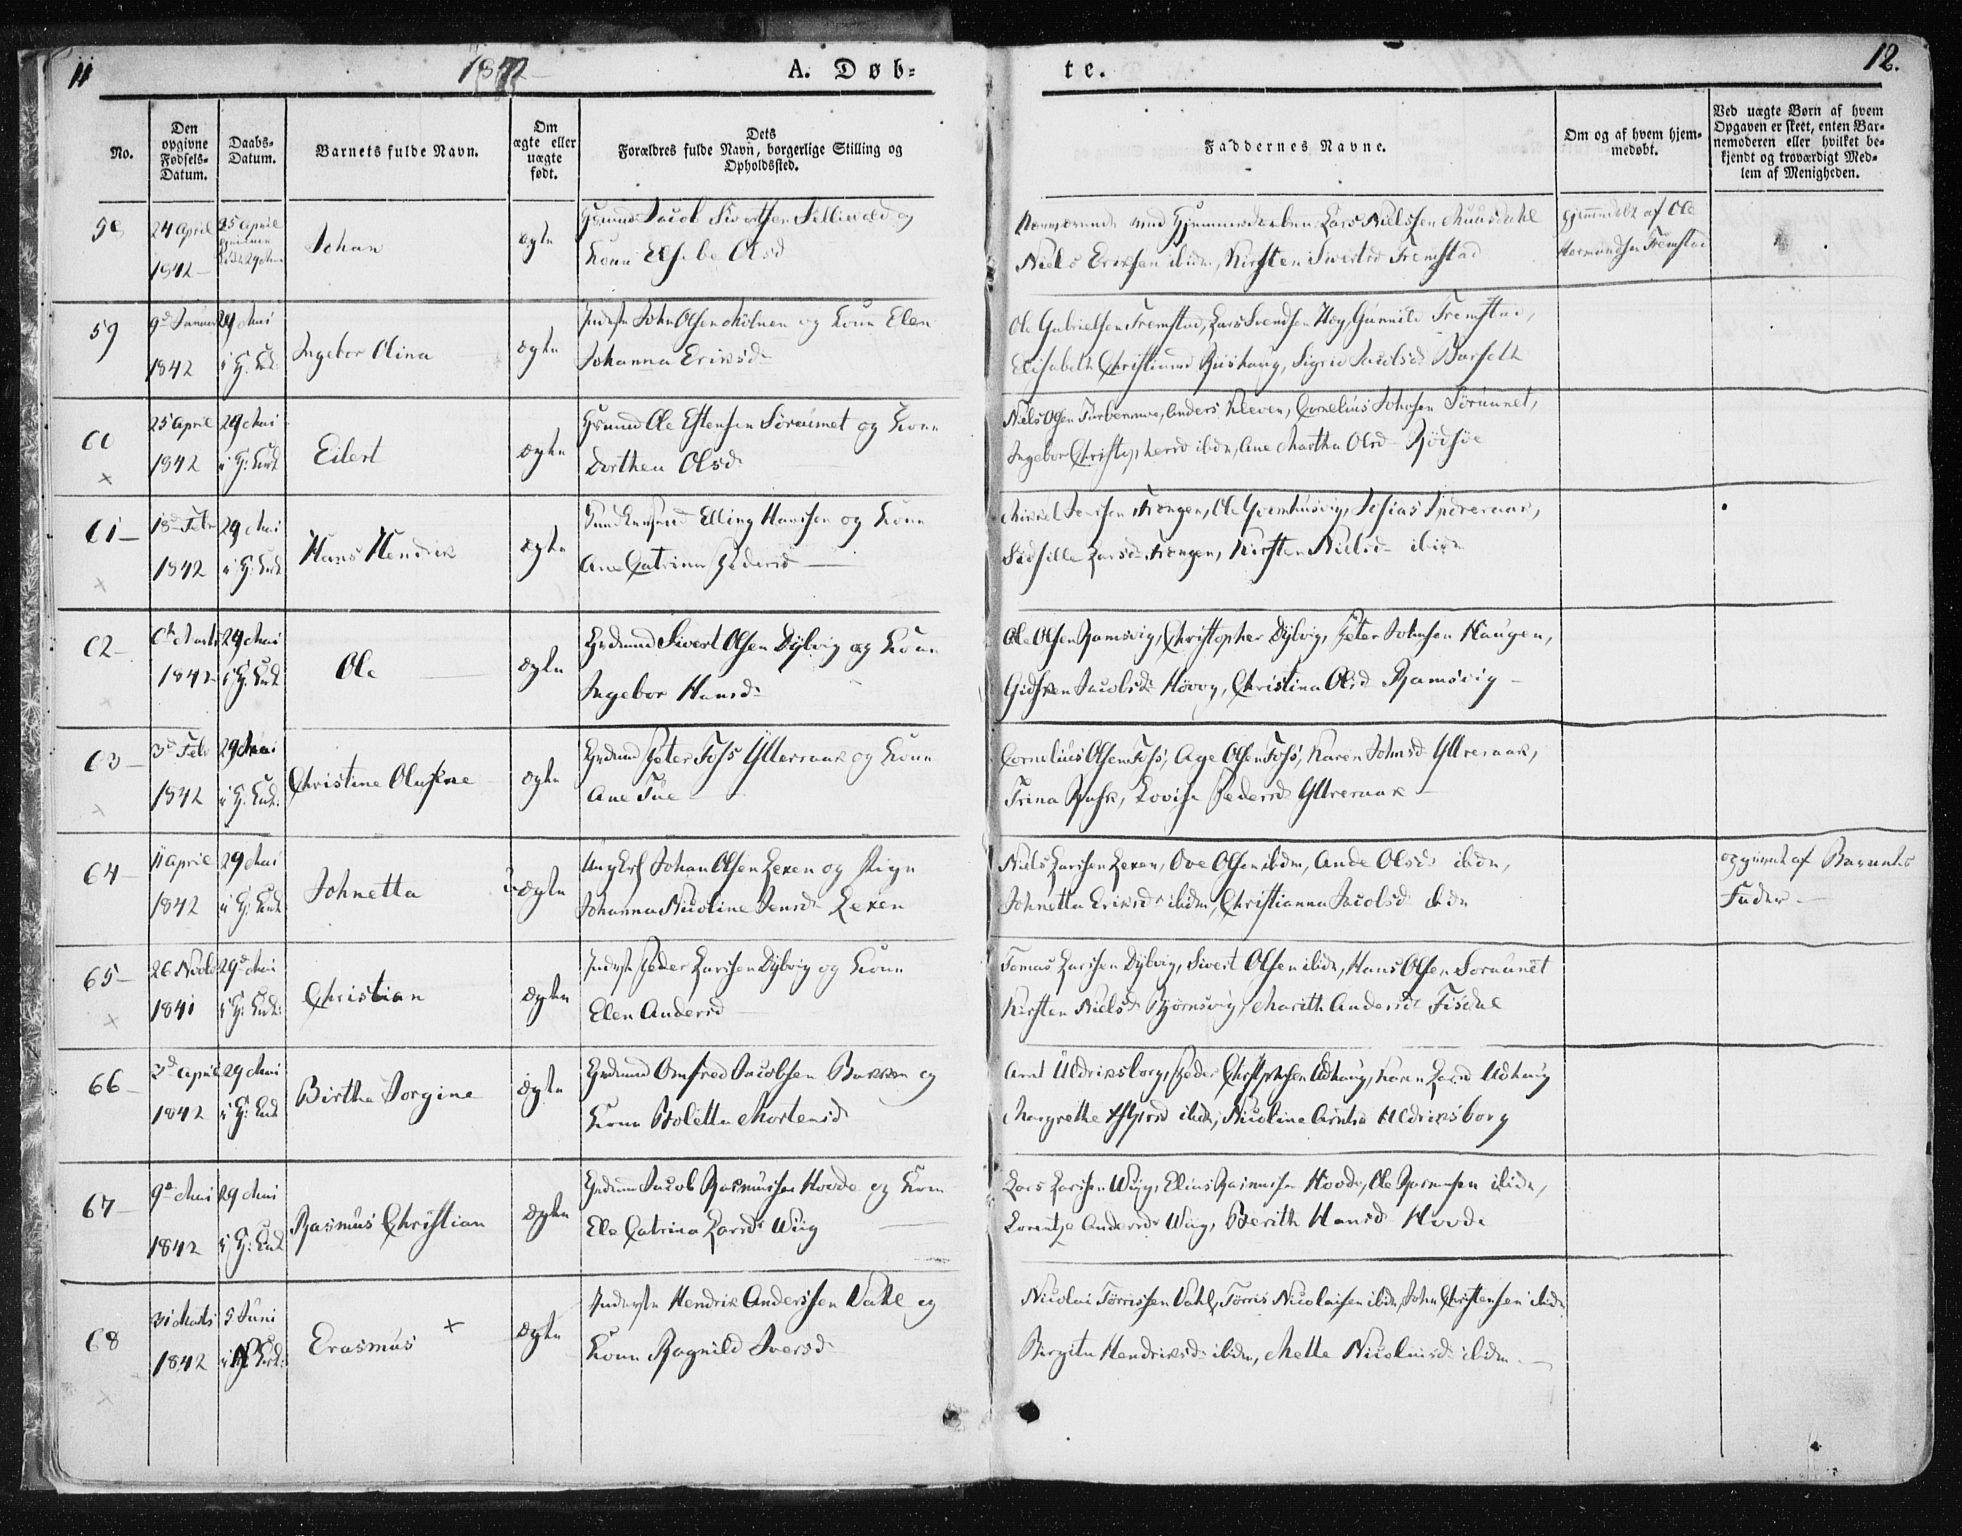 11
1842
A. Døb-
te.
12.
No.
Den opgivne Fødsels-Datum.
Daabs-Datum.
Barnets fulde Navn.
Om ægte eller uægte født.
Dets Forældres fulde Navn, borgerlige Stilling og Opholdssted.
Faddernes Navne.
Om og af hvem hjemmedøbt.
Ved uægte Børn af hvem Opgaven er skeet, enten Barnemoderen eller hvilket bekjendt og troværdigt Medlem af Menigheden.
58
24 April
1842
25 April
29 Mai
Johan
ægte
Jacob Sivertsen og
Kone Elsebe Olsd
Lars Nielssen
Niels Eriksen ibidm, Kirsten Sivertsd Fremstad
hjemmedøbt af Ole
Hermandsen Fremstad
59
9de Januar
1842
29 Mai
i Hj: Kirk:
Ingebor Olina
ægte
Inderst John Olsen Molnen og Kone Elen
Johanna Eriksd
Ole Gabrielsen Fremstad, Lars Svendsen Høy, Gunnild Fremstad,
Elisabeth Christiansd Riishaug, Sigrid Jacobsd Barseth
60
25 April
1842
29 Mai
i Hj: Kirk
Eilert
ægte
Gsmand Ole Estensen Søraunet og Kone
Dorthea Olsd
Niels Olsen, Anders Kleven, Cornelius Johnsen Søraunet,
Ingebor Christophersd ibidm, Ane Martha Olsd Rødsøe
61
18de Febr
1842
29 Mai
i Hj: Kirk
Hans Hendrik
ægte
Elling Hanssen og Kone
Ane Catrina Pedersd
Mikkel Jenssen Trængen, Ole, Tobias Indreraak,
Sidselle Larsd Trængen, Kirsten Nielsd ibidm
62
6te Marts
1842
29 Mai
i Hj: Kirk
Ole
ægte
Grdmand Sivert Olsen Dybvig og Kone
Ingebor Hansd
Ole Olsen Ramsvig, Christopher Dybvig, Peter Johnsen Haugen,
Gidsken Jacobsd, Christina Olsd Ramsvig
63
3de Feb
1842
29 Mai
i Hj: Kirk:
Christine Olufine
ægte
Grdmand Peter Foss Ytterraak og Kone
Ane Tue
Cornelius Olsen Foss, Age Olsen Foss, Karen Johnsd Yttreraak,
Trina Rask, Lovise Pedersd Yttreraak
64
11 April
1842
29 Mai
i Hj: Kirk
Johnetta
uægte
Ungkrl Johan Olsen Lexen og Pige
Johanna Nicoline Jensd Lexen
Niels Larssen Lexen, Ove Olsen ibidm, Ande Olsd ibidm,
Johnetta Eriksd ibidm, Christianna Jacobsd ibidm
opgivet af Barnets
Fader
65
26 Novbr
1841
29de Mai
i Hj: Kirk:
Christian
ægte
Inderst Peder Larssen Dybvig og Kone
Elen Andersd
Tomas Larssen Dybvig, Sivert Olsen ibidm, Hans Olsen Soraunet
Kirsten Nielsd Bjørnsvig, Marith Andersd Fisdal
66
3de April
1842
29 Mai
i Hj: Kirk
Birtha Jorgine
ægte
Grdmand Onsfred Jacobsen Bakken og
Kone Boletta Mortensd
Arnt Uldriksborg, Peder Christophersen Udhaug, Karen Larsd Udhaug
Margrethe ibidm, Nicoline Arntsd Uldriksborg
67
9de Mai
1842
29 Mai
i Hj: Kirk
Rasmus Christian
ægte
Grdmand Jacob Rasmussen Hovde og Kone
Ele Catrina Larsd Wiig
Lars Larssen Wiig, Elias Rasmussen Hovde, Ole Rasmussen ibidm,
Lorentze Andersd Wiig, Berith Hansd Hovde
68
31 Marts
1842
5 Juni
Erasmus
ægte
Inderste Hendrik Anderssen Vahl og
Kone Ragnild Iversd
Nicolai Tørrissen Vahl, Tørris Nicolaisen ibidm, John Christensen ibidm
Birgita Hendriksd ibidm, Mette Nicolaisd ibidm